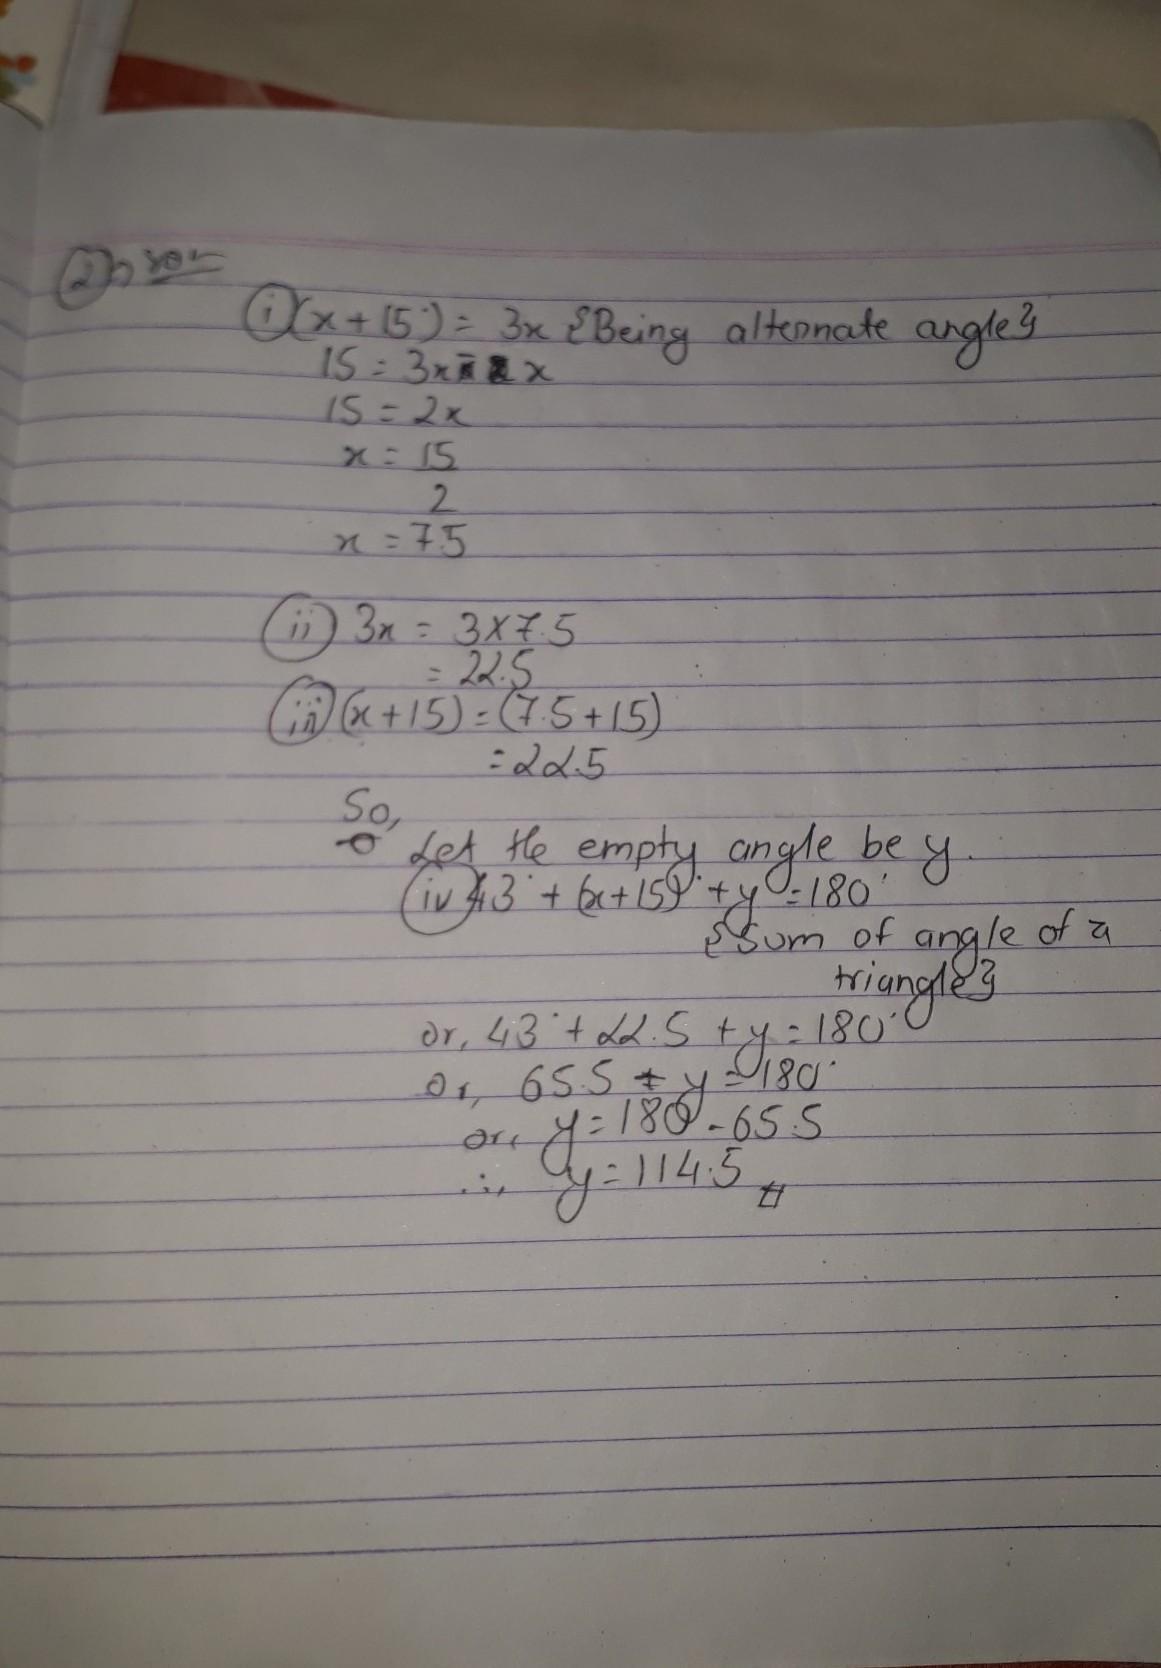 2) Soln
i) (x + 15°) = 3x {Being alternate angle}
15 = 3x - x
15 = 2x
x = 15
2
x = 7.5
ii) 3x = 3 × 7.5
= 22.5
iii) (x + 15) = (7.5 + 15)
= 22.5
So,
Let the empty angle be y.
iv) 43° + (x + 15)° + y = 180°
{Sum of angle of a
triangle}
or, 43° + 22.5 + y = 180°
or, 65.5 + y = 180°
or, y = 180 - 65.5
∴, y = 114.5